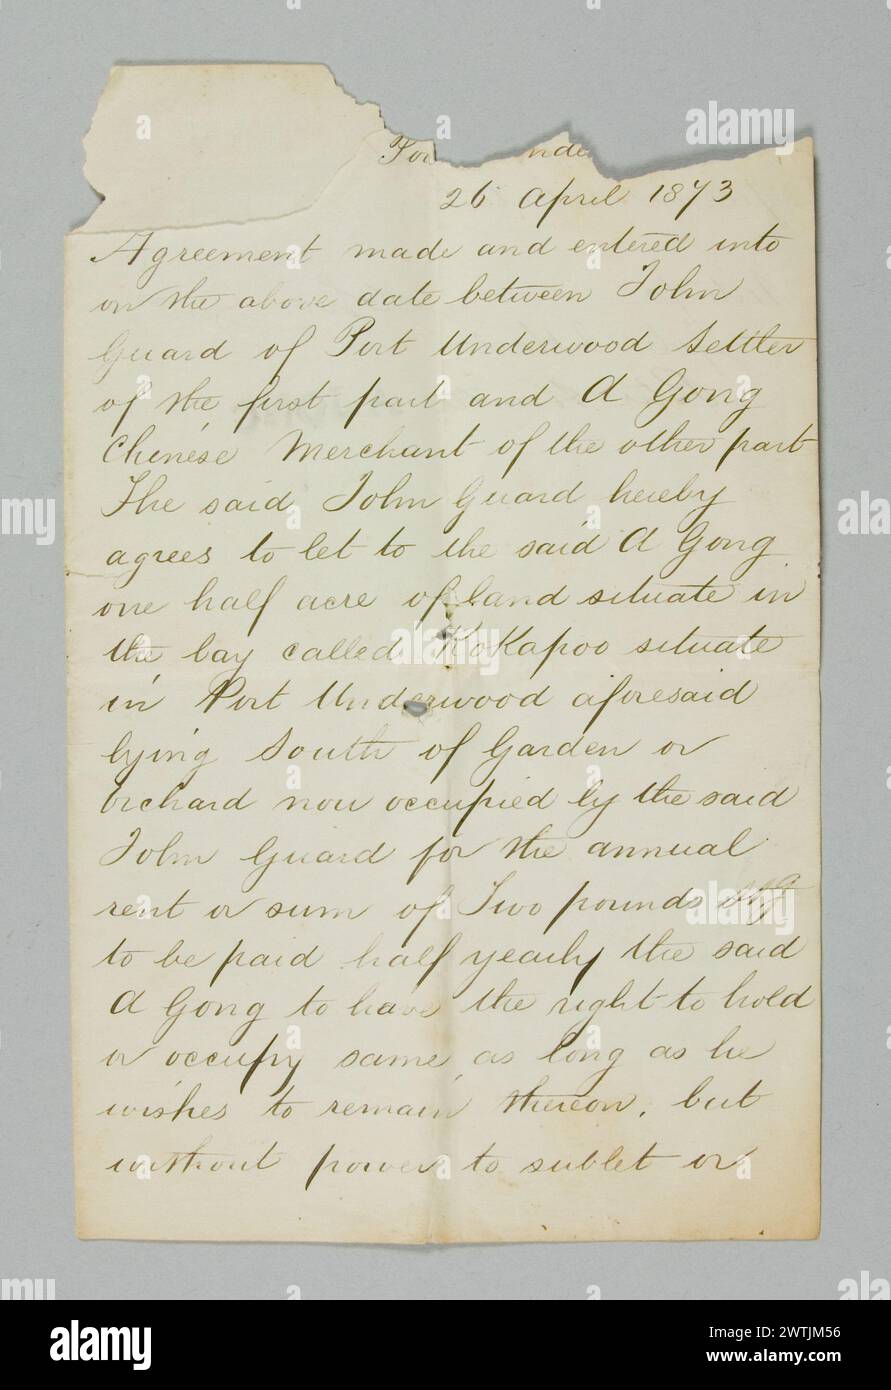 26 April 1873
Agreement made and entered into
on the above date between John
Guard of Port Underwood Settler
of the first part and A Gong
Chinese Merchant of the other part
The said John Guard hereby
agrees to let to the said A Gong
one half acre of land situate in
the bay called KoKapoo situate
in Port Underwood aforesaid
lying South of Garden or
Orchard now occupied by the said
John Guard for the annual
rent or sum of Two pounds stg
to be paid half yearly the said
A Gong to have the right to hold
or occupy same as long as he
wishes to remain thereon, but
without power to sublet or
alamy
Image ID: 2WTJM56
www.alamy.com